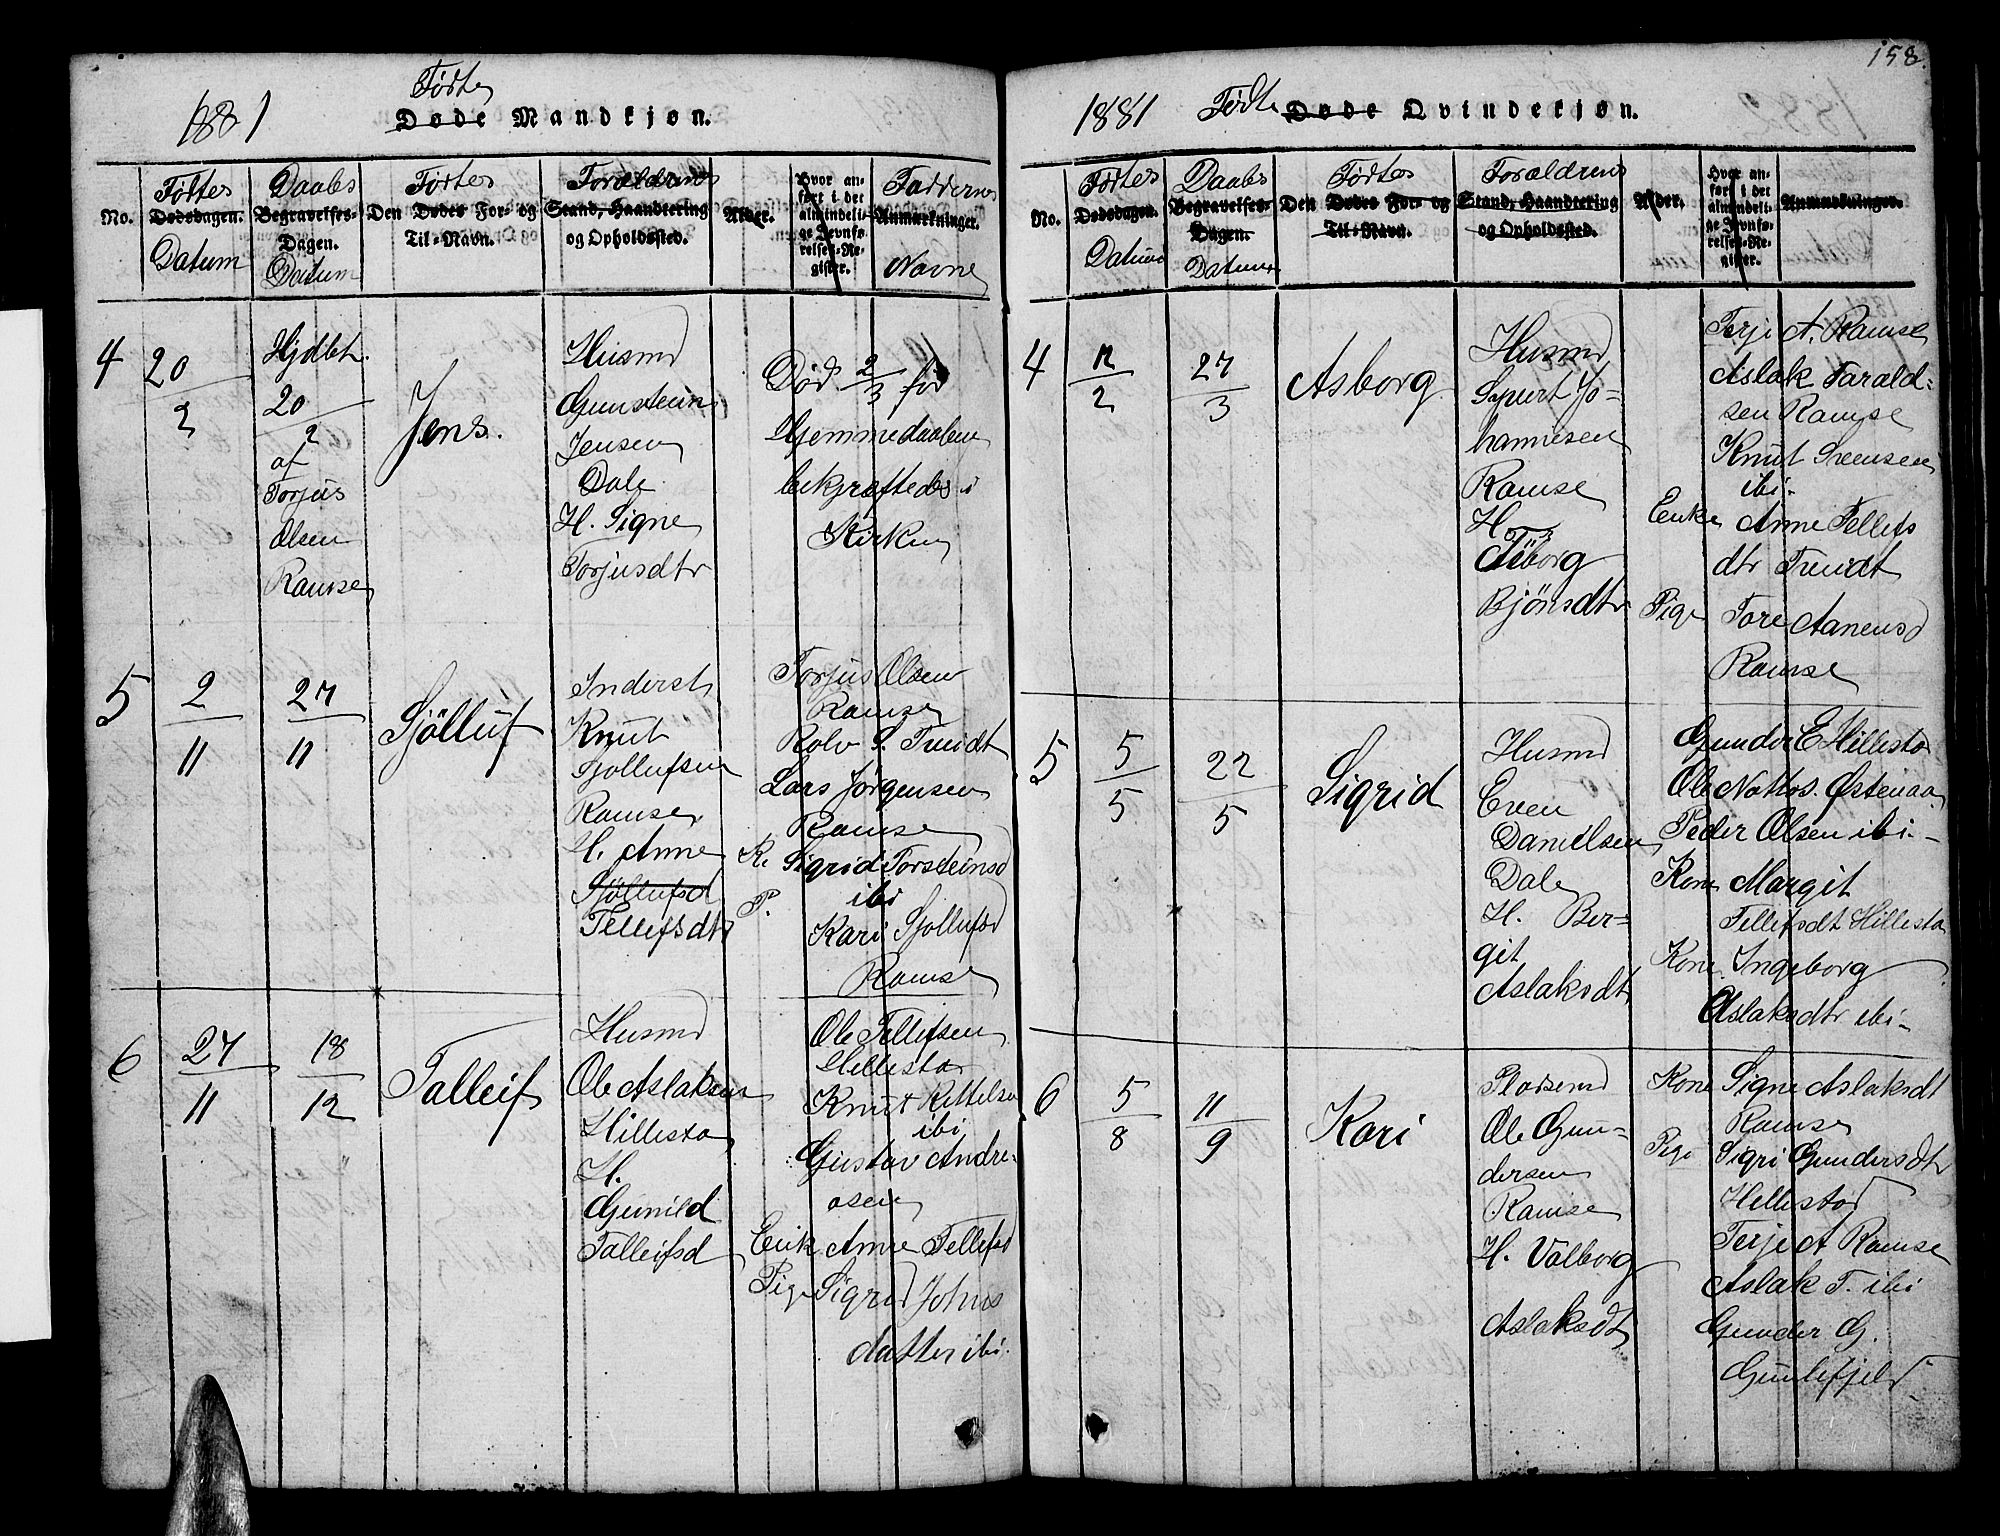 158.
1881
Fødte
Døde Mandkjøn.
No.
Fødtes
Dødsdagen.
Datum
Daabs
Begravelses-
Dagen.
Datum
Fødtes
Den Dødes For- og
Til-Navn.
Forældrenes
Stand, Haandtering
og Opholdssted.
Alder.
Hvor an-
ført i det
almindeli-
ge Jevnfø-
relses-Re-
gister.
Faddernes
Anmærkninger.
Navne
4
20
2
Hjdbt.
20
2
af
Torjus
Olsen
Ramse
Jens.
Husmd
Gunstein
Jensen
Dale
H. Signe
Torjusdtr
Død 2/3 før
Hjemmedaaben
bekræftedes i
Kirken
5
2
11
27
11
Sjølluf
Inderst
Knut
Sjøllufsen
Ramse
H. Anne
Sjøllufsd
Tellefsdtr
Torjus Olsen
Ramse
Rolv S. Treidt
Lars Jørgensen
Ramse
K. Sigrid Torsteinsd
ibi
P.
Kari Sjøllufsd
Ramse
6
27
11
18
12
Talleif
Husmd
Ole Aslaksen
Hillesta
H.
Gunild
Talleifsd
Ole Tellefsen
Hillestad
Knut Kittelsen
ibi
Gustav Andre-
asen
Enk Anne Tellefsd
Pige Sigrid Johns
datter ibi.
1881
Fødte
Døde Qvindekjøn.
No.
Fødtes
Dødsdagen.
Datum
Daabs
Begravelses-
Dagen.
Datum
Fødtes
Den Dødes For- og
Til-Navn.
Forældrenes
Stand, Haandtering
og Opholdssted.
Alder.
Hvor an-
ført i det
almindeli-
ge Jevnfø-
relses-Re-
gister.
Anmærkninger.
4
12
2
27
3
Asborg
Husmd
Syvert Jo-
hannesen
Ramse
H.
Tiborg
Bjørnsdtr
Terje A. Ramse
Aslak Tarald-
sen Ramse
Knut Svensen
ibi.
Enke Anne Tellefs
dtr Treidt
Pige Tore Aanensd
Ramse
5
5
5
22
5
Sigrid
Husmd
Even
Danielsen
Dale
H. Ber-
git
Aslaksdtr
Gunder E Hillesta
Ole Nottos. Østenaa
Peder Olsen ibi.
Kone Margit
Tellefsdt Hillesta
Kone Ingeborg
Aslaksdtr ibi
6
5
8
11
9
Kari
Pladsmd
Ole Gun-
dersen
Ramse
H. Valborg
Aslaksdt
Kone Signe Aslaksdt
Ramse
Pige Sigri Gundersdtr
Hillestad
Terje A Ramse
Aslak T. ibi
Gunder G.
Gunlefjeld